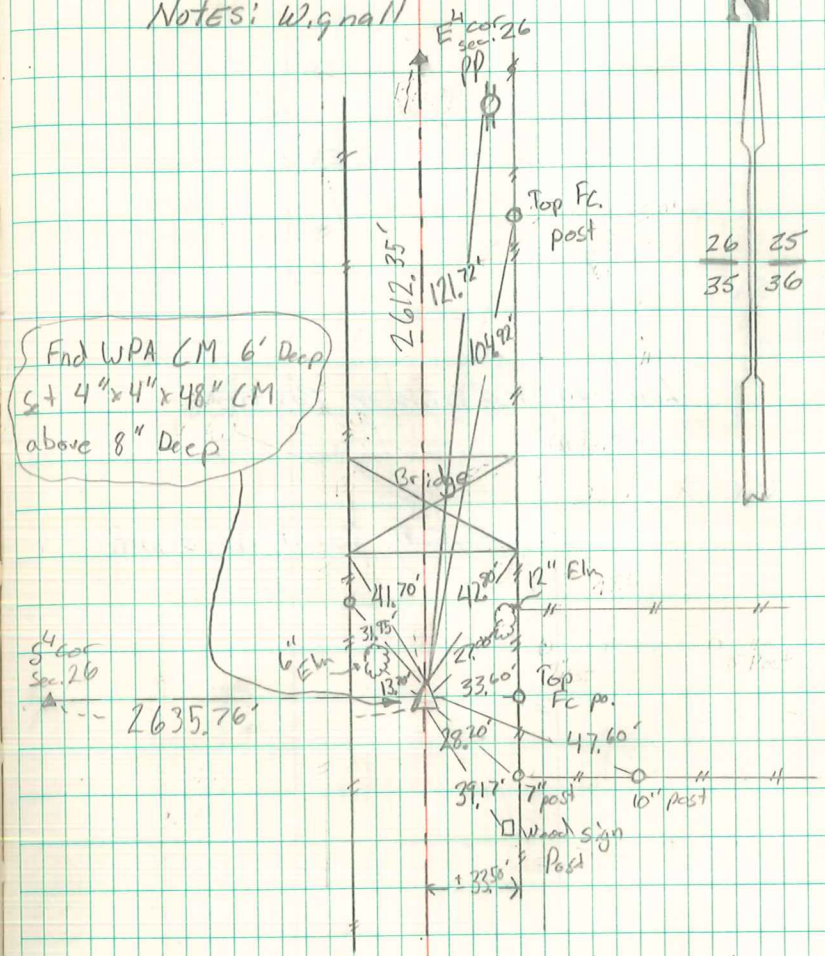 NOTES: Wignall
N
E⁴ cor
sec. 26
PP
Top Fc.
post
26 | 25
35 | 36
2612.35'
121.72'
104.92'
Fnd WPA CM 6' Deep
set 4"x4"x48" CM
above 8" Deep
Bridge
41.70'
42.80'
12" Elm
31.95'
6" Elm
27.00'
13.20'
33.60'
Top
Fc po.
S⁴ cor
Sec. 26
2635.76'
28.20'
47.60'
39.17'
7" post
10" post
Wood sign
Post
± 33.50'